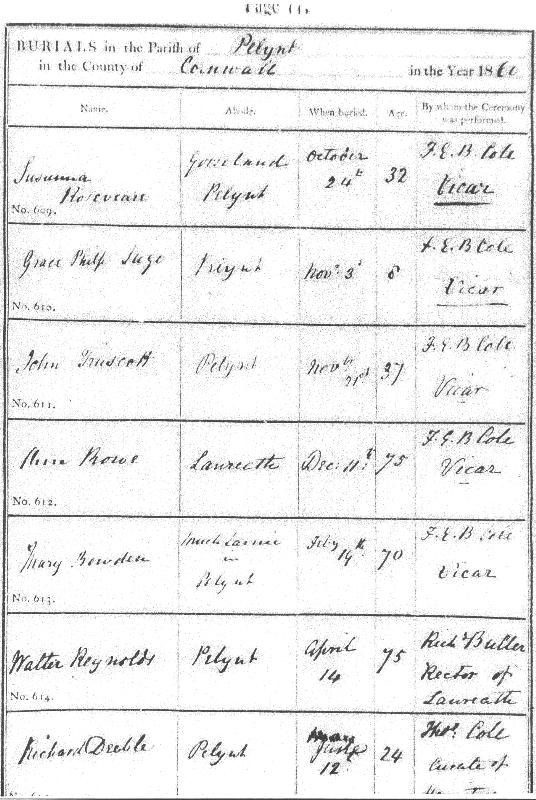 BURIALS in the Parish of Pelynt
in the County of Cornwall in the Year 186
Name. Abode. When buried. Age. By whom the Ceremony
was performed.
Susanna
Rosevear
No. 609.
Pelynt
October
24
32
F. E. B Cole
Vicar
Grace Philp
No. 610.
Pelynt
Novr 3d
8
F. E. B Cole
Vicar
John Truscott
No. 611.
Pelynt
Novbr
21st
37
F. E. B Cole
Vicar
Ann Rowe
No. 612.
Laureath
Dec: 11
75
F. E. B Cole
Vicar
Mary Bowden
No. 613.
in
Pelynt
Feby
14th
70
F. E. B Cole
Vicar
Walter Reynolds
No. 614.
Pelynt
April
14
75
Richd Butler
Rector of
Laureath
Richard Deeble
Pelynt
12
24
Thos. Cole
Curate of